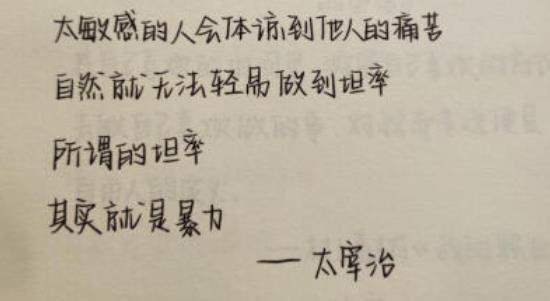 太敏感的人会体谅到他人的痛苦
自然就无法轻易做到坦率
所谓的坦率
其实就是暴力
— 太宰治